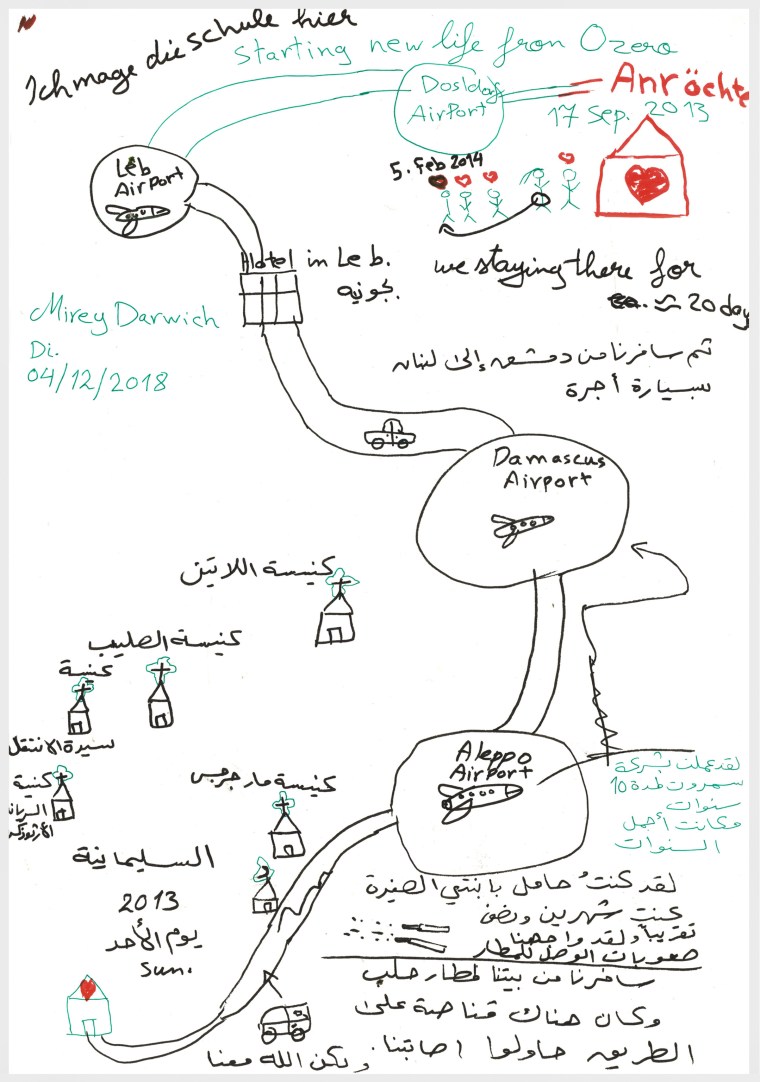 Ich mage die schule hier
starting new life from Ozero
Dosldorg
Airport
Anröchte
17 Sep. 2013
5. Feb 2014
Leb
Airport
Hotel in Leb.
جونيه
we staying there for
≈ 20 day
Mirey Darwich
Di.
04/12/2018
ثم سافرنا من دمشق إلى لبنان
بسيارة أجرة
Damascus
Airport
كنيسة اللاتين
كنيسة الصليب
كنيسة
سيدة الانتقل
كنيسة
السريان
الأرثوذكس
كنيسة مار جرجس
Aleppo
Airport
لقد عملت بشركة
لمدة 10
سنوات
وكانت أجمل
السنوات
السليمانية
2013
يوم الأحد
Sun.
لقد كنتُ حامل بابنتي الصغيرة
كنت شهرين ونصف
تقريباً ولقد واجهنا
صعوبات الوصل للمطار
سافرنا من بيتنا لمطار حلب
وكان هناك قناصة على
الطريق حاولوا اصابتنا.
ولكن الله معنا